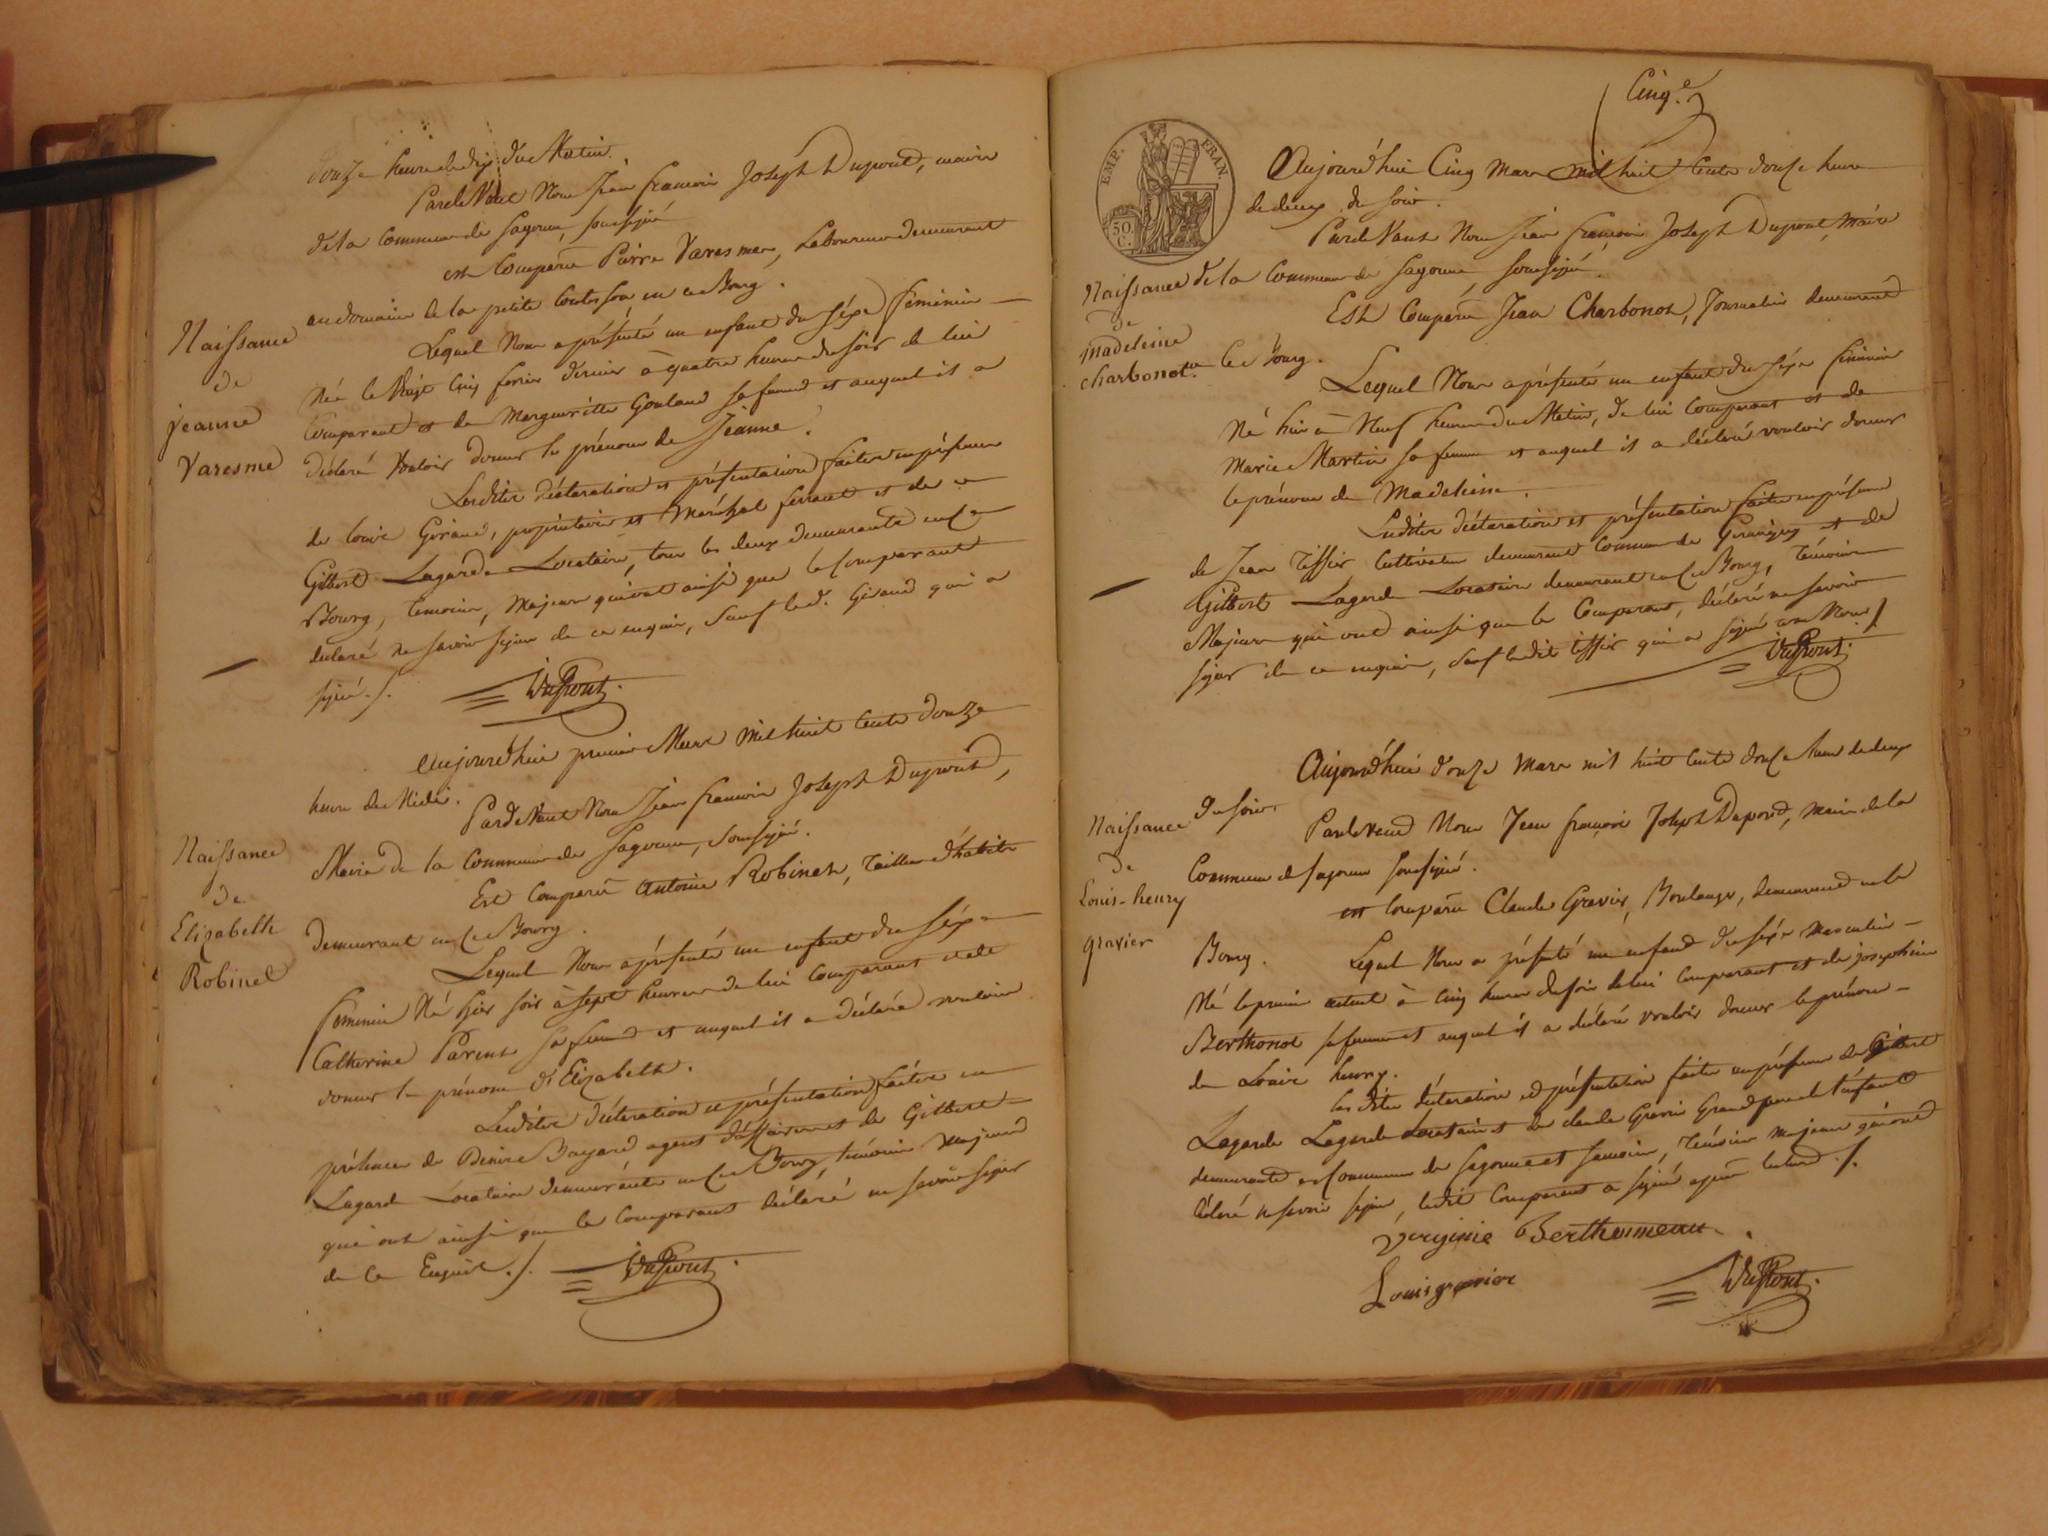 douze heure de dix du Matin.
Pardevant Nous Jean francois Joseph Dupont, maire
de la Commune de Sagonne, soussigné
est Comparu Pierre Varesme, Laboureur demeurant
au domaine de la petite en ce Bourg.
Lequel Nous a présenté un enfant du séxe féminin
Naissance
de
jeanne
Varesme
Née le Vingt Cinq fevrier dernier à quatre heure du soir de lui
Comparant et de Margueritte Goulaud sa femme et auquel il a
déclaré Vouloir donner le prénom de Jeanne.
Lesdites déclaration et présentation faites en présence
de louis Giraud, propriétaire et Maréchal ferrant et de
Gilbert Lagarde Locataire, tous les deux demeurants en ce
Bourg, temoins, Majeurs qui ont ainsi que le Comparant
declaré ne savoir signer de ce enquis, sauf led. Giraud qui a
signé ./.
Dupont.
Aujourd'hui premier Mars Mil huit Cents douze
heure de Midi.
Pardevant Nous Jean francois Joseph Dupont,
Maire de la Commune de Sagonne, Soussigné.
Naissance
de
Elizabeth
Robinet
Est Comparu antoine Robinet, Tailleur d'habits
demeurant en Ce Bourg.
Lequel Nous a présenté un enfant du séxe
feminin Né hier soir à sept heures de lui Comparant et de
Catherine Parent sa femme et auquel il a déclaré vouloir
donner le prénom d'Elizabeth.
Lesdites déclaration et présentation faites en
présence de Bayard agent d'affaires et de Gilbert
Lagarde Locataire demeurants en Ce Bourg, témoins Majeurs
qui ont ainsi que le Comparant déclaré ne savoir signer
de Ce Enquis ./.
Dupont.
Cinq.e
EMP. FRAN.
50 C.
Aujourd'hui Cinq mars mil huit Cents douze heure
de deux du soir.
Pardevant Nous Jean françois Joseph Dupont, Maire
de la Commune de Sagonne, soussigné.
Naissance
de
madeleine
charbonot
Est Comparu Jean Charbonot, Journalier demeurant
en Ce Bourg.
Lequel Nous a présenté un enfant du séxe féminin
Né hier à Neuf heures du Matin, de lui Comparant et de
Marie Martin sa femme et auquel il a déclaré vouloir donner
le prénom de Madeleine.
Lesdites déclaration et présentation faites en présence
de Jean Tissier Cultivateur demeurant Commune de et de
Gilbert Lagarde Locataire demeurant en Ce Bourg, témoins
Majeurs qui ont ainsi que le Comparant, déclaré ne savoir
signer de ce enquis, sauf ledit tissier qui a signé avec Nous ./.
Dupont.
Aujourd'hui douze mars mil huit cents douze heure de deux
du soir.
Pardevant Nous Jean françois Joseph Dupont, maire de la
Commune de Sagonne soussigné.
Naissance
de
Louis-henry
gravier
est Comparu Claude Gravier, Boulanger, demeurant en ce
Bourg.
Lequel Nous a présenté un enfant du séxe masculin
Né le premier à Cinq heures du soir de lui Comparant et de josephine
Berthonot sa femme et auquel il a déclaré vouloir donner le prénom
de Louis henry.
lesdites déclaration et présentation faites en présence de Gilbert
Lagarde Lagarde Locataire et de claude Gravier Grand père de l'enfant
demeurants Commune de Sagonne et témoins majeurs qui ont
déclaré ne savoir signer, ledit Comparant a signé après lecture ./.
virginie Bertheumeau.
Louis gravier
Dupont.